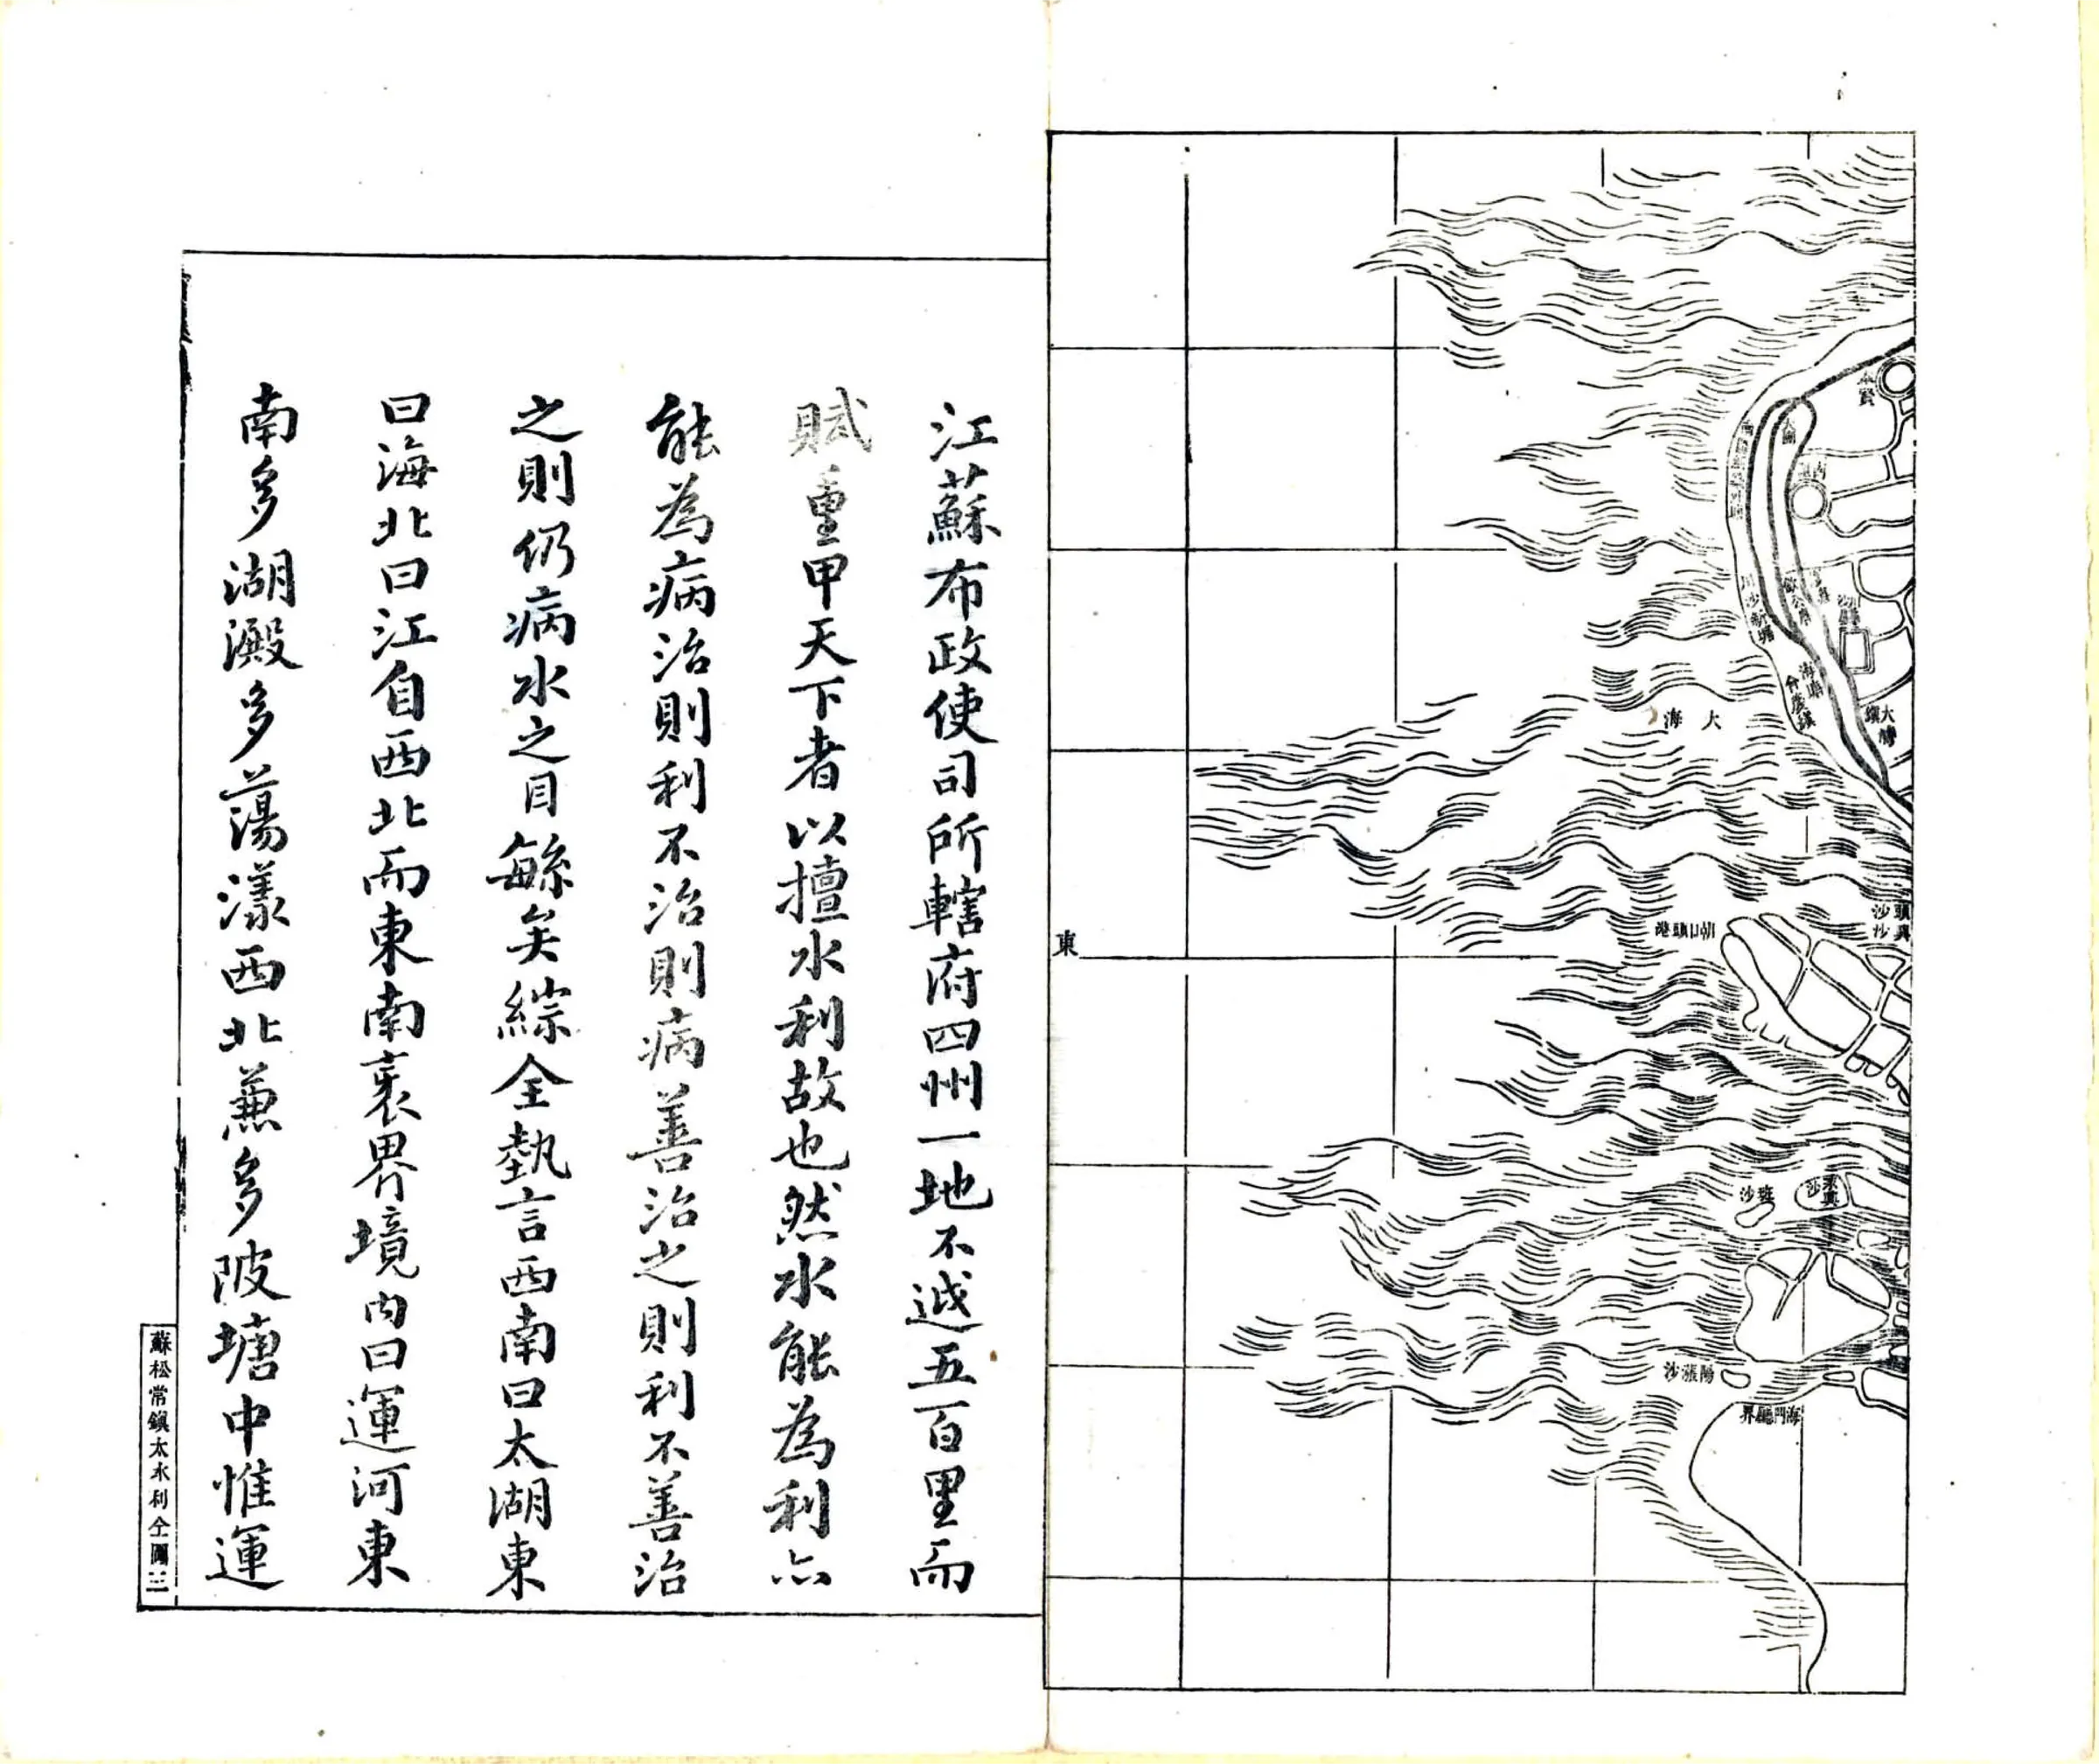 奉賢
大海
大灣鎮
海塘
東
沙頭
沙興
崇興沙
陽漲沙
海門廳界
江蘇布政使司所轄府四州一地不逾五百里而
賦重甲天下者以擅水利故也然水能為利亦
能為病治則利不治則病善治之則利不善治
之則仍病水之目緐矣綜全埶言西南曰太湖東
曰海北曰江自西北而東南袤界境内曰運河東
南多湖澱多蕩漾西北兼多陂塘中惟運
蘇松常鎮太水利全圖 三